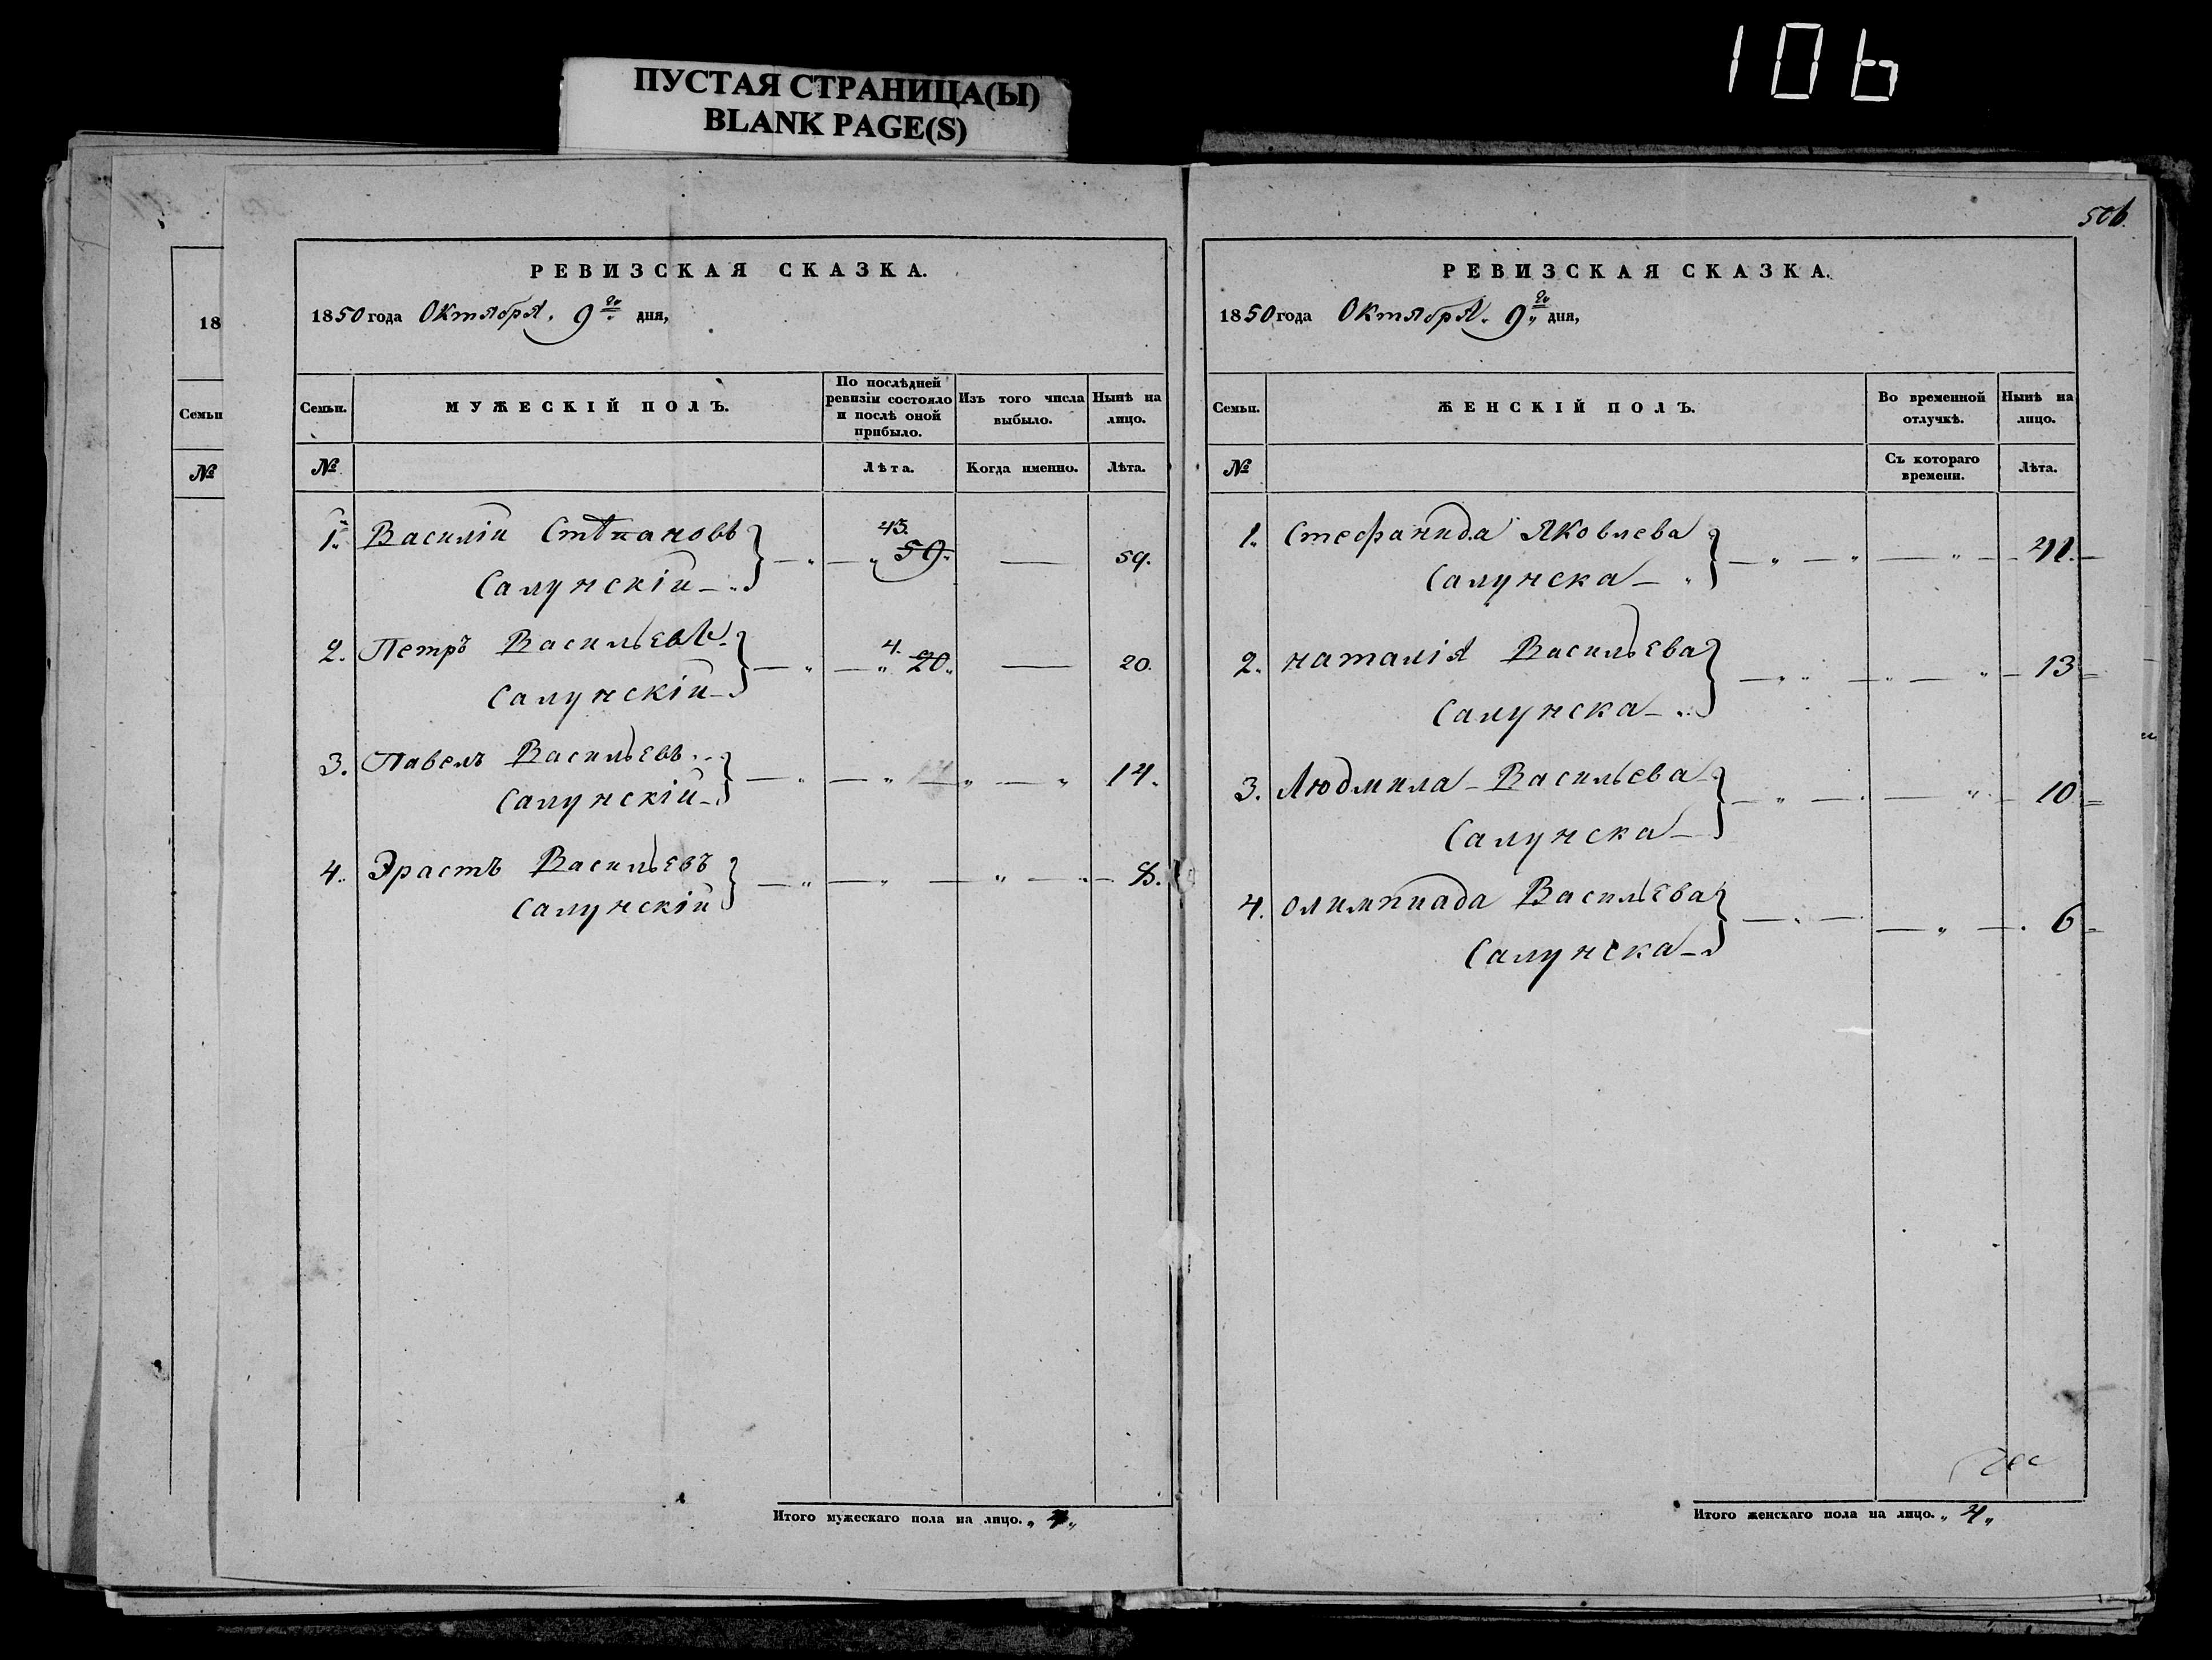 106
ПУСТАЯ СТРАНИЦА(Ы)
BLANK PAGE(S)
18
Семьи
№
РЕВИЗСКАЯ СКАЗКА.
1850 года Октября. 9го дня,
Семьи.
МУЖЕСКІЙ ПОЛЪ.
По послѣдней ревизіи состояло и послѣ оной прибыло.
Изъ того числа выбыло.
Нынѣ на лицо.
№
Лѣта.
Когда именно.
Лѣта.
1. Василіи Стѣпановъ 43. 59. 59.
Салунскіи
2. Петръ Васильевъ 4. 20. 20.
Салунскіи
3. Павелъ Васильевъ 14.
Салунскіи
4. Эрастъ Васильевъ 8.
Салунскіи
Итого мужескаго пола на лицо. „ 4 „
506.
РЕВИЗСКАЯ СКАЗКА.
1850 года Октября. 9го дня,
Семьи.
ЖЕНСКІЙ ПОЛЪ.
Во временной отлучкѣ.
Нынѣ на лицо.
№
Съ котораго времени.
Лѣта.
1. Стефанида Яковлева 41.
Салунска
2. Наталія Васильева 13
Салунска
3. Людмила Васильева 10
Салунска
4. Олимпиада Васильева 6
Салунска
Итого женскаго пола на лицо. „ 4 „